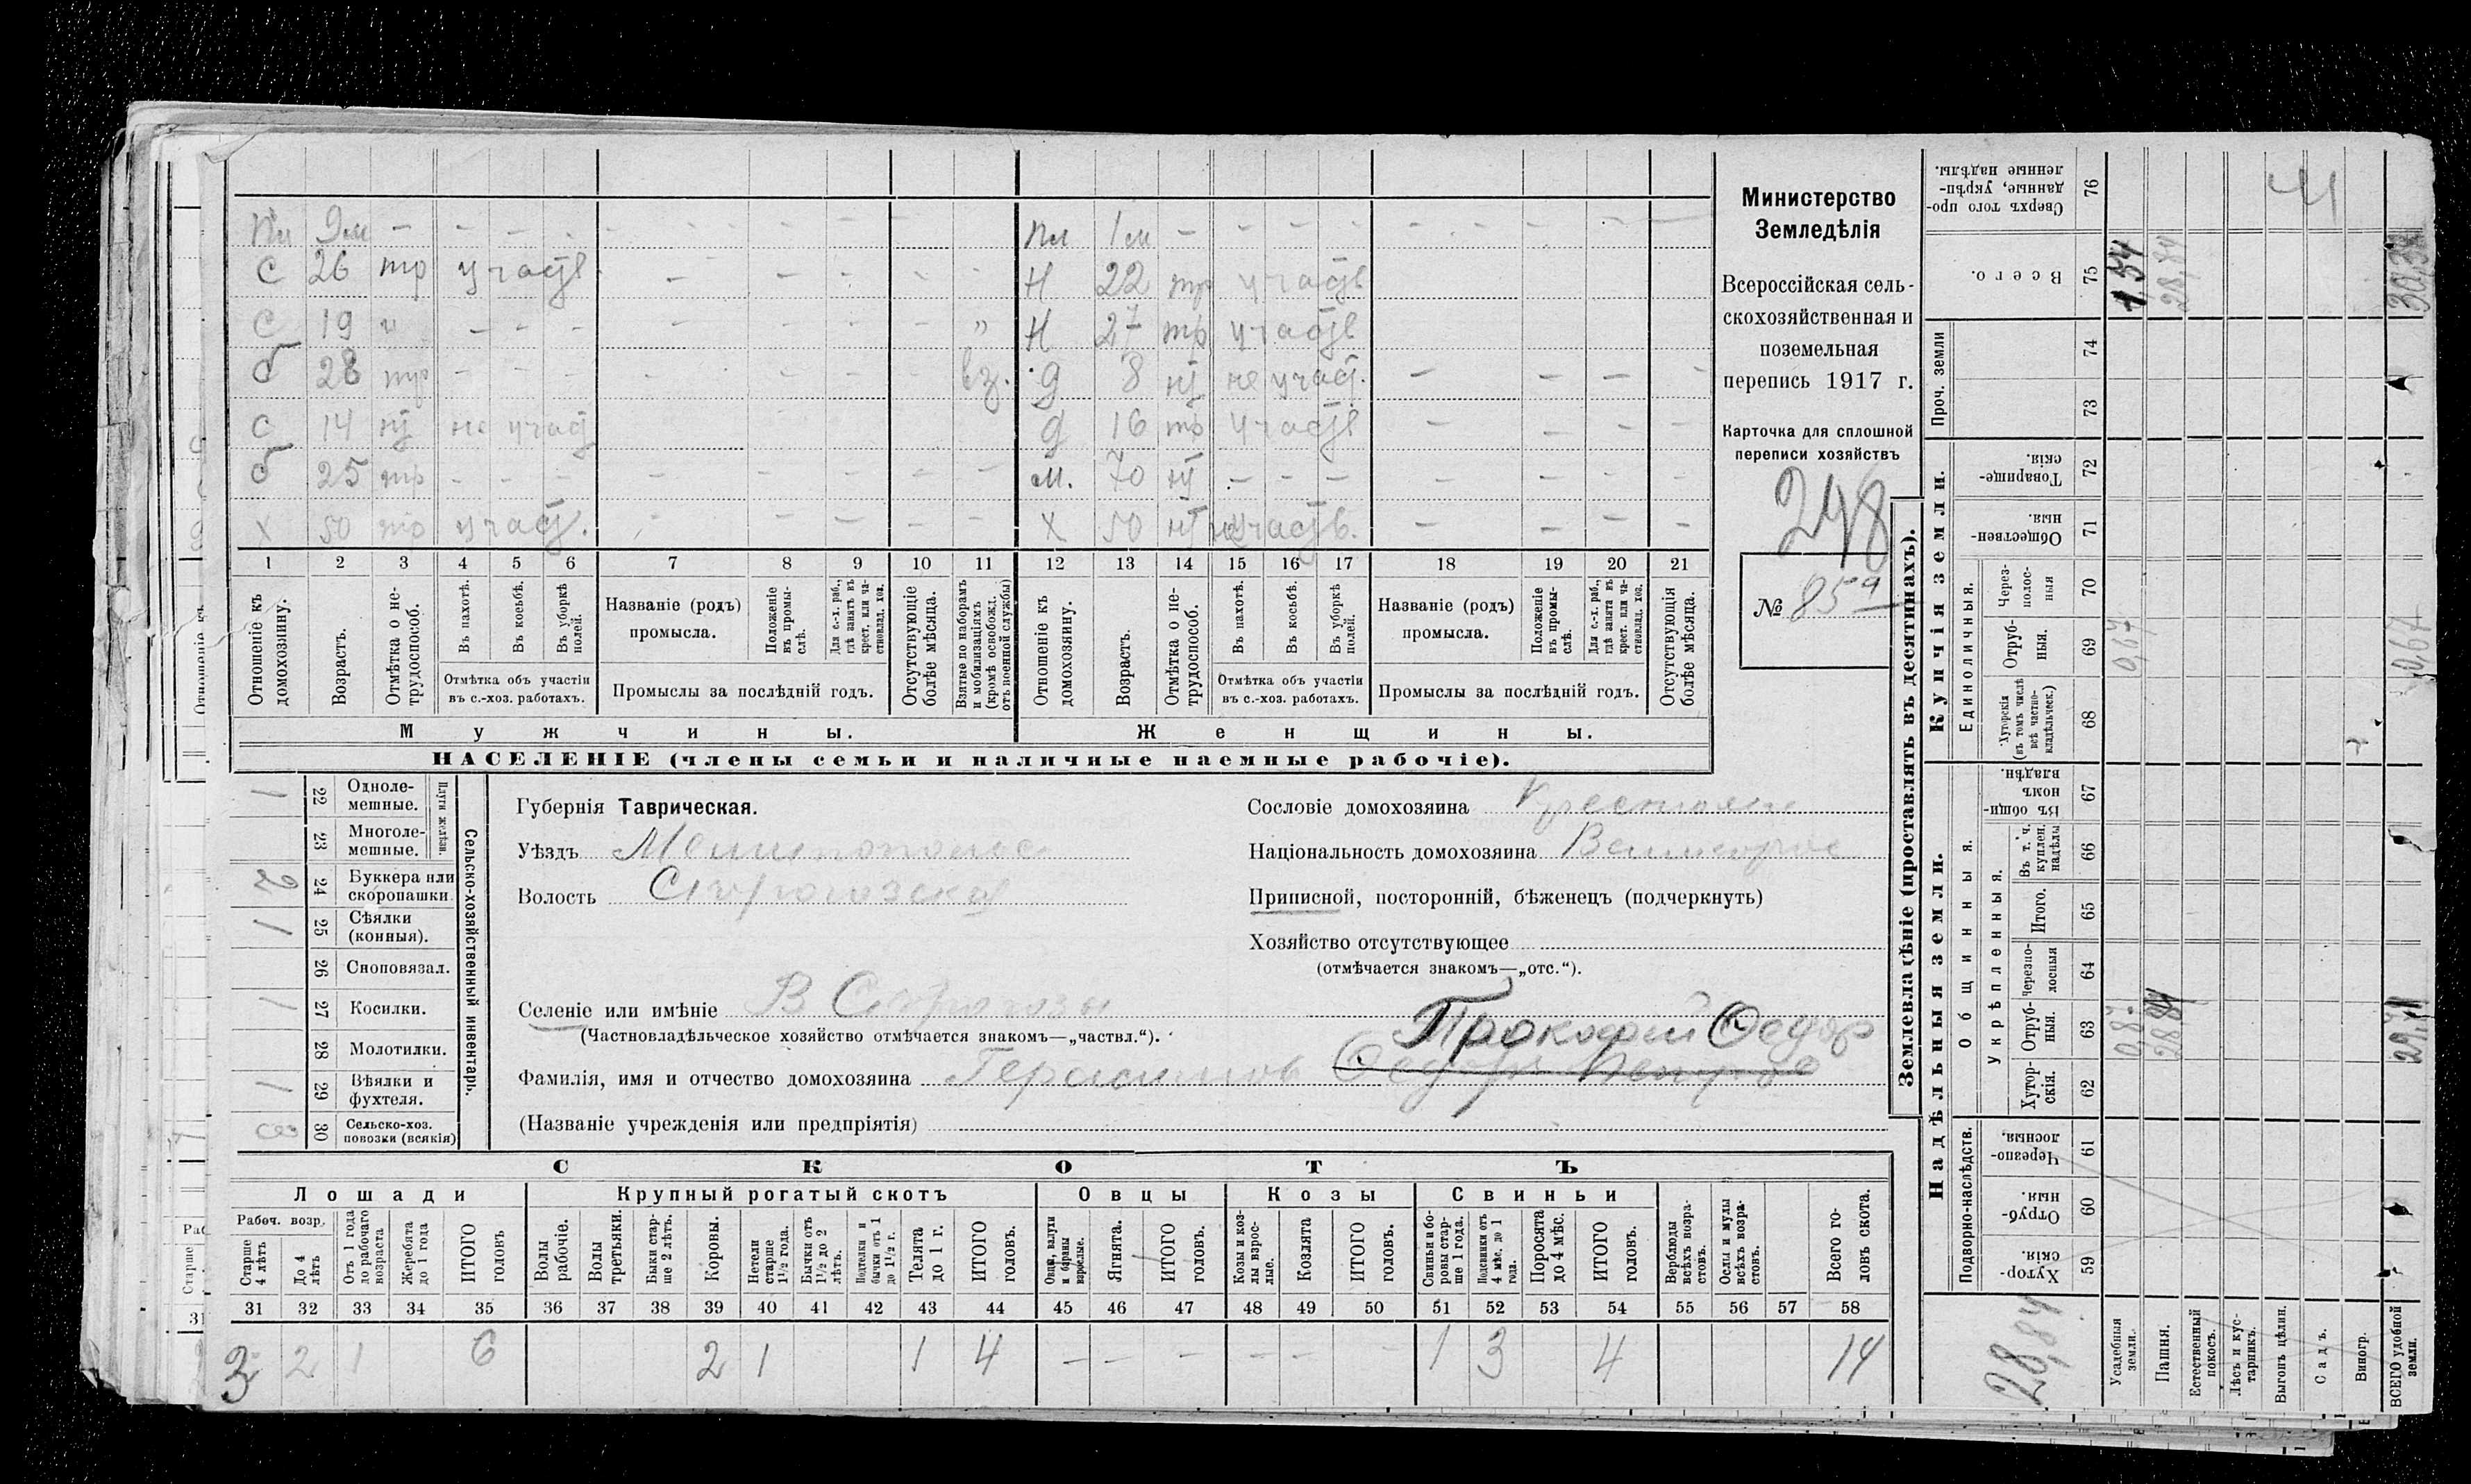 пл 9 м – – – – – – – – – пл 1 м – – – – – – – –
с 26 тр участв. – – – – – н 22 тр участв
с 19 и – – – – – – – „ н 27 тр участв
б 28 тр – – – – – – – вз. д 8 нт не участ. – – – –
с 14 нт не участ – – – – – д 16 тр участв – – – –
б 25 тр – – – – – – – – м. 70 нт – – – – – – –
х 50 тр участ. – – – – – х 50 нт участв. – – – –
1 2 3 4 5 6 7 8 9 10 11 12 13 14 15 16 17 18 19 20 21
Отношеніе къ домохозяину.
Возрастъ.
Отмѣтка о не-трудоспособ.
Въ пахотѣ.
Въ косьбѣ.
Въ уборкѣ полей.
Отмѣтка объ участіи въ с.-хоз. работахъ.
Названіе (родъ) промысла.
Положеніе въ промы-слѣ.
Для с.-х. раб., гдѣ занятъ въ крест. или ча-стновлад. хоз.
Промыслы за послѣдній годъ.
Отсутствующіе болѣе мѣсяца.
Взятые по наборамъ и мобилизаціямъ (кромѣ освобожд. отъ военной службы)
Отношеніе къ домохозяину.
Возрастъ.
Отмѣтка о не-трудоспособ.
Въ пахотѣ.
Въ косьбѣ.
Въ уборкѣ полей.
Отмѣтка объ участіи въ с.-хоз. работахъ.
Названіе (родъ) промысла.
Положеніе въ промы-слѣ.
Для с.-х. раб., гдѣ занята въ крест. или ча-стновлад. хоз.
Промыслы за послѣдній годъ.
Отсутствующія болѣе мѣсяца.
Мужчины.
Женщины.
НАСЕЛЕНІЕ (члены семьи и наличные наемные рабочіе).
Министерство
Земледѣлія
Всероссійская сель-
скохозяйственная и
поземельная
перепись 1917 г.
Карточка для сплошной
переписи хозяйствъ
248
№ 85
1 22 Однолемешные.
23 Многолемешные.
Плуги желѣзн.
2 24 Буккера или скоропашки
1 25 Сѣялки (конныя).
26 Сноповязал.
1 27 Косилки.
28 Молотилки.
1 29 Вѣялки и фухтеля.
30 Сельско-хоз. повозки (всякія)
Сельско-хозяйственный инвентарь.
Губернія Таврическая.
Уѣздъ Мелитопольс
Волость
Селеніе или имѣніе
(Частновладѣльческое хозяйство отмѣчается знакомъ—„частвл.“).
Фамилія, имя и отчество домохозяина Герасимов Прокофий Федор
(Названіе учрежденія или предпріятія)
Сословіе домохозяина
Національность домохозяина Великорос
Приписной, посторонній, бѣженецъ (подчеркнуть)
Хозяйство отсутствующее
(отмѣчается знакомъ—„отс.“).
СКОТЪ
Лошади
Крупный рогатый скотъ
Овцы
Козы
Свиньи
Рабоч. возр.
Старше 4 лѣтъ
До 4 лѣтъ
Отъ 1 года до рабочаго возраста
Жеребята до 1 года
ИТОГО головъ
Волы рабочіе.
Волы третьяки.
Быки старше 2 лѣтъ.
Коровы.
Нетели старше 1½ года.
Бычки отъ 1½ до 2 лѣтъ.
Подтелки и бычки отъ 1 до 1½ г.
Телята до 1 г.
ИТОГО головъ.
Овцы, валухи и бараны взрослые.
Ягнята.
ИТОГО головъ.
Козы и козлы взрослые.
Козлята
ИТОГО головъ.
Свиньи и боровы старше 1 года.
Подсвинки отъ 4 мѣс. до 1 года.
Поросята до 4 мѣс.
ИТОГО головъ.
Верблюды всѣхъ возрастовъ.
Ослы и мулы всѣхъ возрастовъ.
Всего головъ скота.
31 32 33 34 35 36 37 38 39 40 41 42 43 44 45 46 47 48 49 50 51 52 53 54 55 56 57 58
3 2 1 6 2 1 1 4 – – – – – – 1 3 4 14
Землевладѣніе (проставлять въ десятинахъ).
Надѣльныя земли.
Купчія земли.
Проч. земли
Подворно-наслѣдств.
Общинныя.
Укрѣпленныя.
Единоличныя.
Хуторскія 59
Отрубныя. 60
Черезполосныя. 61
Хуторскія. 62
Отрубныя. 63
Черезполосныя 64
Итого. 65
Въ т. ч. куплен. надѣлы 66
Въ общинномъ владѣн. 67
Хуторскія (въ томъ числѣ всѣ частновладѣльческ.) 68
Отрубныя. 69
Черезполосныя 70
Общественныя. 71
Товарищескія. 72
73
74
Всего. 75
Сверхъ того проданные, укрѣпленные надѣлы. 76
Усадебныя земли. 0,87 0,67 1.54
Пашня. 28.84 28,84
Естественный покосъ.
Лѣсъ и кустарникъ.
Выгонъ цѣлин.
Садъ.
Виногр.
ВСЕГО удобной земли. 29.71 0,67
28,84